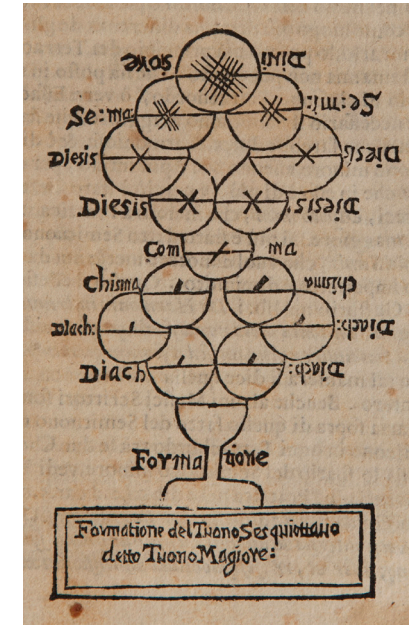 sione Divi
Se:ma Se:mi:
Diesis Diesis
Diesis Diesis:
Com ma
Chisma Chisma
Diach: Diach:
Diach Diach:
Forma tione
Formatione del Tuono Sesquiottauo
detto Tuono Magiore: